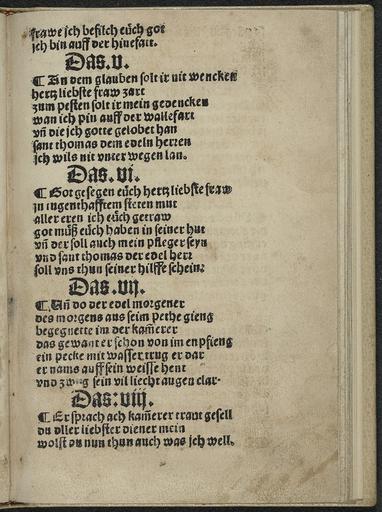 frawe ich befilch eüch got
ich bin auff der hinefart.
Das.v.
¶ An dem glauben solt ir nit wencken
hertz liebste fraw zart
zum pesten solt ir mein gedencken
wan ich pin auff der wallefart
vñ die ich gotte gelobet han
sant thomas dem edeln herren
ich wils nit vnter wegen lan.
Das.vi.
¶ Got gesegen eüch hertz liebste fraw
in tugenthafftem steten mut
aller eren ich eüch getraw
got müß eüch haben in seiner hut
vñ der soll auch mein pfleger seyn
vnd sant thomas der edel herr
soll vns thun seiner hilffe schein:
Das.vij.
¶ Vñ do der edel morgener
des morgens aus seim pethe gieng
begegnette im der kam̃erer
das gewant er schon von im enpfieng
ein pecke mit wasser trug er dar
er nams auff sein weisse hent
vnd zwug sein vil liecht augen clar.
Das:viij.
¶ Er sprach ach kam̃erer traut gesell
du aller liebster diener mein
wolst du nun thun auch was ich well.